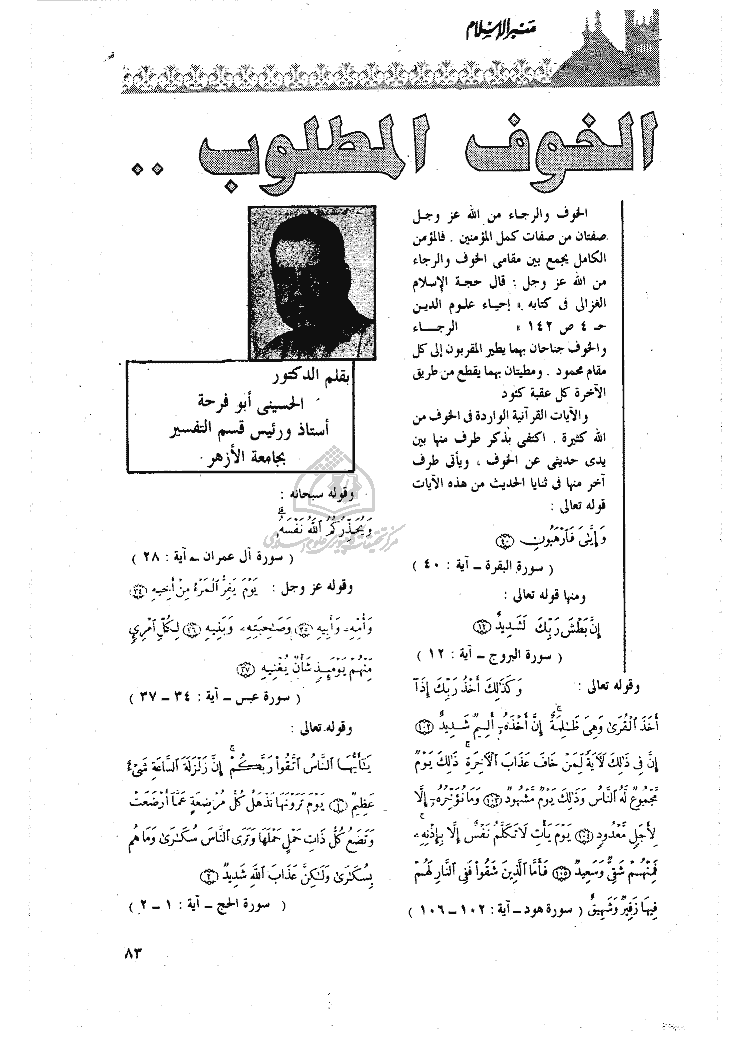 منبر الإسلام
الخوف المطلوب ..
الخوف والرجاء من الله عز وجل
صفتان من صفات كمل المؤمنين . فالمؤمن
الكامل يجمع بين مقامى الخوف والرجاء
من الله عز وجل : قال حجة الإسلام
الغزالى فى كتابه « إحياء علوم الدين
حـ ٤ ص ١٤٢ » الرجـــاء
والخوف جناحان بهما يطير المقربون إلى كل
مقام محمود . ومطيتان بهما يقطع من طريق
الآخرة كل عقبة كئود
والآيات القرآنية الواردة فى الخوف من
الله كثيرة . اكتفى بذكر طرف منها بين
يدى حديثى عن الخوف ، ويأتى طرف
آخر منها فى ثنايا الحديث من هذه الآيات
قوله تعالى :
وَإِيَّٰىَ فَٱرْهَبُونِ ﴿٤٠﴾
( سورة البقرة – آية : ٤٠ )
ومنها قوله تعالى :
إِنَّ بَطْشَ رَبِّكَ لَشَدِيدٌ ﴿١٢﴾
( سورة البروج – آية : ١٢ )
وقوله تعالى : وَكَذَٰلِكَ أَخْذُ رَبِّكَ إِذَآ
أَخَذَ ٱلْقُرَىٰ وَهِىَ ظَٰلِمَةٌ ۚ إِنَّ أَخْذَهُۥٓ أَلِيمٌ شَدِيدٌ ﴿١٠٢﴾
إِنَّ فِى ذَٰلِكَ لَآيَةً لِّمَنْ خَافَ عَذَابَ ٱلْآخِرَةِ ۚ ذَٰلِكَ يَوْمٌ
مَّجْمُوعٌ لَّهُ ٱلنَّاسُ وَذَٰلِكَ يَوْمٌ مَّشْهُودٌ ﴿١٠٣﴾ وَمَا نُؤَخِّرُهُۥٓ إِلَّا
لِأَجَلٍ مَّعْدُودٍ ﴿١٠٤﴾ يَوْمَ يَأْتِ لَا تَكَلَّمُ نَفْسٌ إِلَّا بِإِذْنِهِۦ ۚ
فَمِنْهُمْ شَقِىٌّ وَسَعِيدٌ ﴿١٠٥﴾ فَأَمَّا ٱلَّذِينَ شَقُوا۟ فَفِى ٱلنَّارِ لَهُمْ
فِيهَا زَفِيرٌ وَشَهِيقٌ ( سورة هود – آية : ١٠٢ – ١٠٦ )
بقلم الدكتور
الحسينى أبو فرحة
أستاذ ورئيس قسم التفسير
بجامعة الأزهر
وقوله سبحانه :
وَيُحَذِّرُكُمُ ٱللَّهُ نَفْسَهُۥ ۗ
( سورة آل عمران – آية : ٢٨ )
وقوله عز وجل : يَوْمَ يَفِرُّ ٱلْمَرْءُ مِنْ أَخِيهِ ﴿٣٤﴾
وَأُمِّهِۦ وَأَبِيهِ ﴿٣٥﴾ وَصَٰحِبَتِهِۦ وَبَنِيهِ ﴿٣٦﴾ لِكُلِّ ٱمْرِئٍ
مِّنْهُمْ يَوْمَئِذٍ شَأْنٌ يُغْنِيهِ ﴿٣٧﴾
( سورة عبس – آية : ٣٤ – ٣٧ )
وقوله تعالى :
يَٰٓأَيُّهَا ٱلنَّاسُ ٱتَّقُوا۟ رَبَّكُمْ ۚ إِنَّ زَلْزَلَةَ ٱلسَّاعَةِ شَىْءٌ
عَظِيمٌ ﴿١﴾ يَوْمَ تَرَوْنَهَا تَذْهَلُ كُلُّ مُرْضِعَةٍ عَمَّآ أَرْضَعَتْ
وَتَضَعُ كُلُّ ذَاتِ حَمْلٍ حَمْلَهَا وَتَرَى ٱلنَّاسَ سُكَٰرَىٰ وَمَا هُم
بِسُكَٰرَىٰ وَلَٰكِنَّ عَذَابَ ٱللَّهِ شَدِيدٌ ﴿٢﴾
( سورة الحج – آية : ١ – ٢ )
٨٣